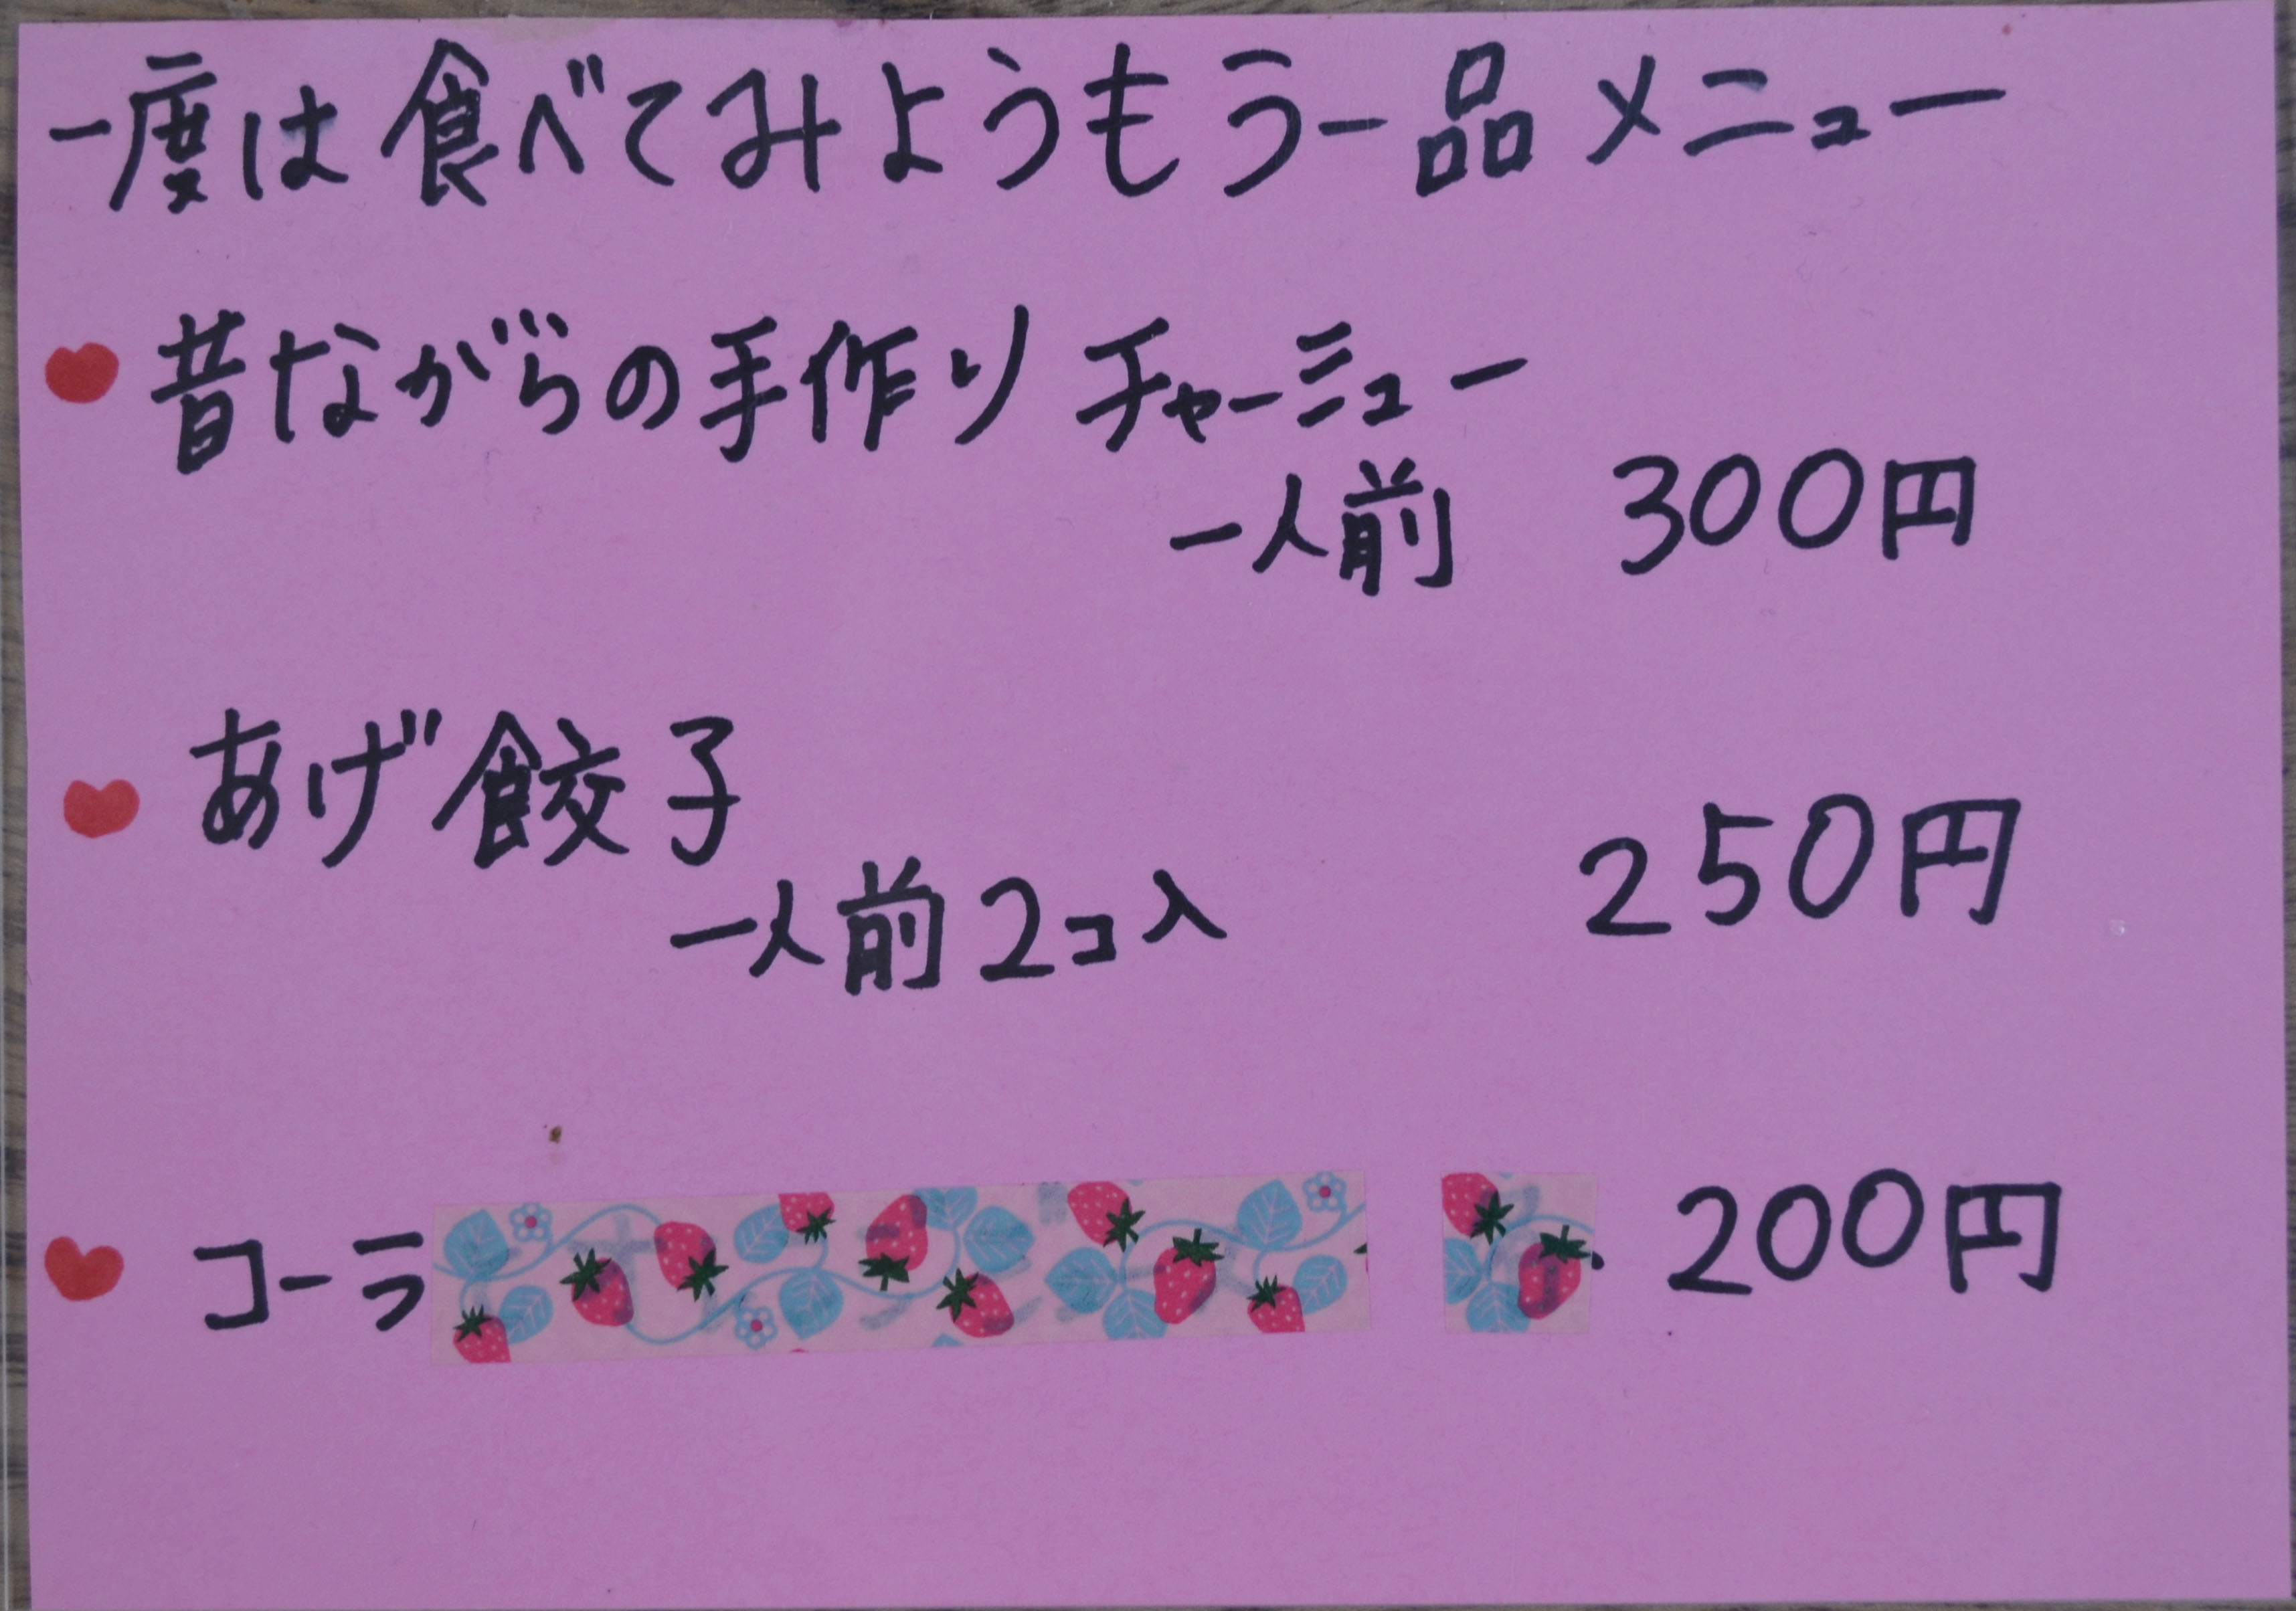 一度は食べてみようもう一品メニュー
昔ながらの手作りチャーミュー
一人前 300円
あげ餃子
一人前2コ入 250円
コーラ 200円